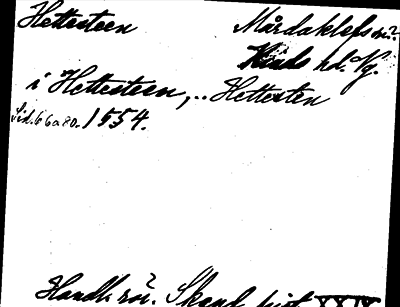 Hettesteen Mårdaklefs sn?
Kinds hd. Vg.
i Hettesteen, .. Hettesten
Sid. 66 a 80. 1554.
Handl. rör. Skand. hist. XXIX